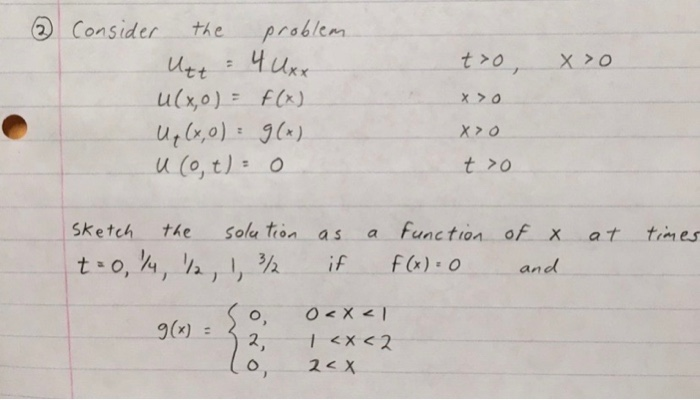 ② Consider the problem
u_tt = 4 u_xx t > 0, x > 0
u(x,0) = f(x) x > 0
u_t(x,0) = g(x) x > 0
u(0,t) = 0 t > 0
Sketch the solution as a function of x at times
t = 0, 1/4, 1/2, 1, 3/2 if f(x) = 0 and
g(x) = { 0, 0 < x < 1
2, 1 < x < 2
0, 2 < x